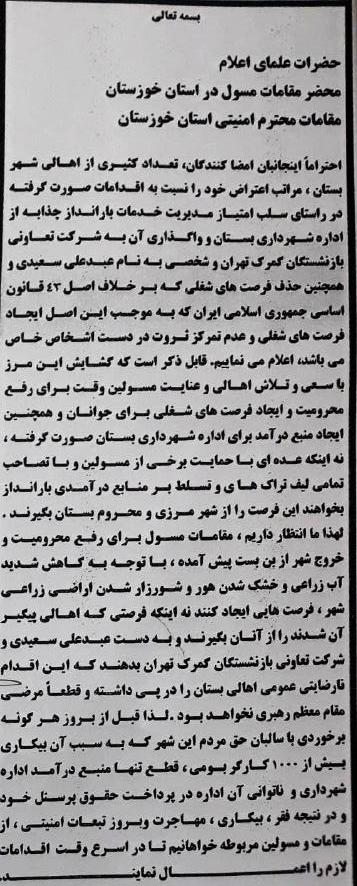 بسمه تعالی
حضرات علمای اعلام
محضر مقامات مسول در استان خوزستان
مقامات محترم امنیتی استان خوزستان
احتراماً اینجانبان امضا کنندگان، تعداد کثیری از اهالی شهر
بستان ، مراتب اعتراض خود را نسبت به اقدامات صورت گرفته
در راستای سلب امتیاز مدیریت خدمات بارانداز چذابه از
اداره شهرداری بستان و واگذاری آن به شرکت تعاونی
بازنشستگان گمرک تهران و شخصی به نام عبدعلی سعیدی و
همچنین حذف فرصت های شغلی که بر خلاف اصل ۴۳ قانون
اساسی جمهوری اسلامی ایران که به موجب این اصل ایجاد
فرصت های شغلی و عدم تمرکز ثروت در دست اشخاص خاص
می باشد، اعلام می نماییم. قابل ذکر است که گشایش این مرز
با سعی و تلاش اهالی و عنایت مسولین وقت برای رفع
محرومیت و ایجاد فرصت های شغلی برای جوانان و همچنین
ایجاد منبع درآمد برای اداره شهرداری بستان صورت گرفته ،
نه اینکه عده ای با حمایت برخی از مسولین و با تصاحب
تمامی لیف تراک ها ی و تسلط بر منابع درآمدی بارانداز
بخواهند این فرصت را از شهر مرزی و محروم بستان بگیرند .
لهذا ما انتظار داریم ، مقامات مسول برای رفع محرومیت و
خروج شهر از بن بست پیش آمده ، با توجه به کاهش شدید
آب زراعی و خشک شدن هور و شورزار شدن اراضی زراعی
شهر ، فرصت هایی ایجاد کنند نه اینکه فرصتی که اهالی پیگیر
آن شدند را از آنان بگیرند و به دست عبدعلی سعیدی و
شرکت تعاونی بازنشستگان گمرک تهران بدهند که این اقدام
نارضایتی عمومی اهالی بستان را در پی داشته و قطعاً مرضی
مقام معظم رهبری نخواهد بود .لذا قبل از بروز هر گونه
برخوردی با سالبان حق مردم این شهر که به سبب آن بیکاری
بیش از ۱۰۰۰ کارگر بومی ، قطع تنها منبع درآمد اداره
شهرداری و ناتوانی آن اداره در پرداخت حقوق پرسنل خود
و در نتیجه فقر ، بیکاری ، مهاجرت وبروز تبعات امنیتی ، از
مقامات و مسولین مربوطه خواهانیم تا در اسرع وقت اقدامات
لازم را اعمال نمایند.